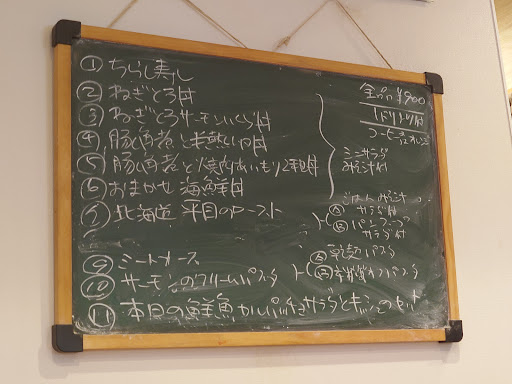 ① ちらし寿し
② ねぎとろ丼
③ ねぎとろサーモンいくら丼
④ 豚角煮と半熟い卵丼
⑤ 豚角煮と焼肉あいもり2種丼
⑥ おまかせ海鮮丼
⑦ 北海道 平目のロースト
⑨ ミートオース
⑩ サーモンのクリームパスタ
⑪ 本日の鮮魚カルパッチョサラダとキッシュのセット
全品 ¥900
1ドリンク付
コーヒー
ミニサラダ
みそ汁付
ごはん みそ汁
サラダ付
Ⓑ パン スープ
サラダ付
Ⓐ 乾麺パスタ
パスタ